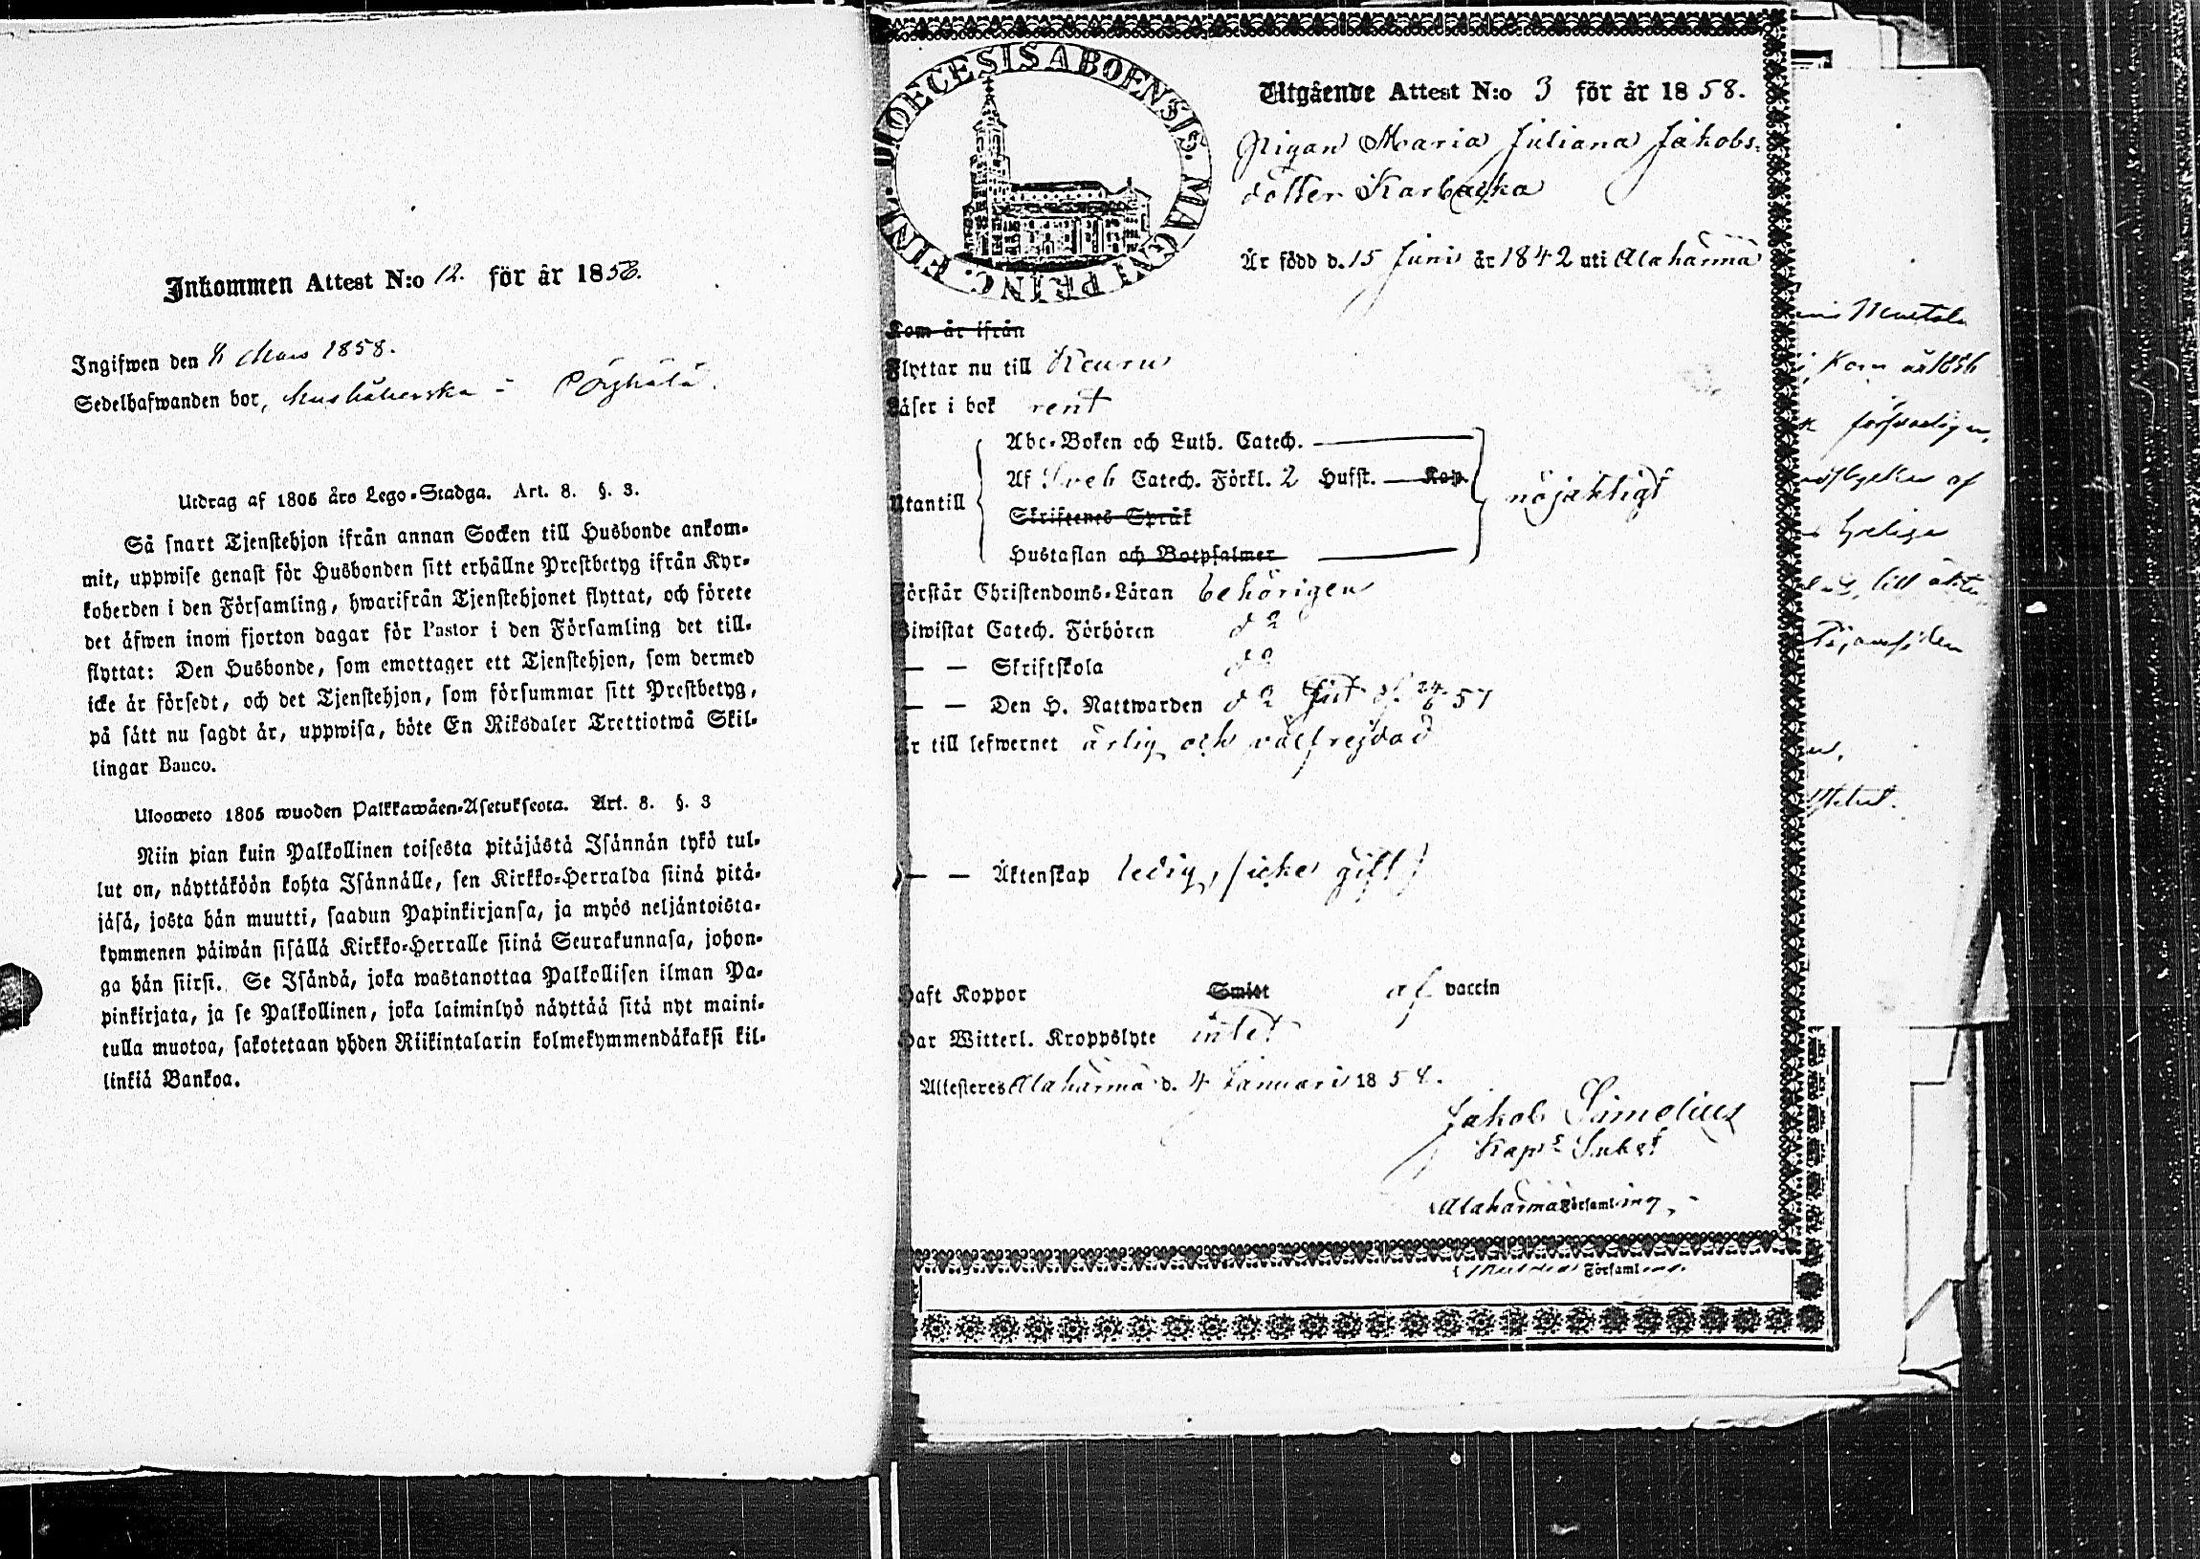 Inkommen Attest N:o 12. för år 1858.
Ingifwen den 8 Mars 1858.
Sedelhafwanden bor,
Utdrag af 1805 års Lego-Stadga. Art. 8. §. 3.
Så snart Tjenstehjon ifrån annan Socken till Husbonde ankom-
mit, uppwise genast för Husbonden sitt erhållne Prestbetyg ifrån Kyr-
koherden i den Församling, hwarifrån Tjenstehjonet flyttat, och förete
det äfwen inom fjorton dagar för Pastor i den Församling det till-
flyttat: Den Husbonde, som emottager ett Tjenstehjon, som dermed
icke är försedt, och det Tjenstehjon, som försummar sitt Prestbetyg,
på sätt nu sagdt är, uppwisa, böte En Riksdaler Trettiotwå Skil-
lingar Banco.
Uloswето 1805 wuoden Palkkawäen-Asetuksesta. Art. 8. §. 3
Niin pian kuin Palkollinen toisesta pitäjästä Isännän tykö tul-
lut on, näyttäköön kohta Isännälle, sen Kirkko-Herralda siinä pitä-
jäsä, josta hän muutti, saadun Papinkirjansa, ja myös neljäntoista-
kymmenen päiwän sisällä Kirkko-Herralle siinä Seurakunnasa, johon-
ga hän siirsi. Se Isändä, joka wastanottaa Palkollisen ilman Pa-
pinkirjata, ja se Palkollinen, joka laiminlyö näyttää sitä nyt maini-
tulla muotoa, sakotetaan yhden Riikintalarin kolmekymmendäkaksi kil-
linkiä Bankoa.
DIOECESIS ABOENSIS. MAGNI PRINC. FINL.
Utgående Attest N:o 3 för år 1858.
Pigan Maria Juliana Jakobs-
dotter Karbacka
Är född d. 15 Juni år 1842 uti Alahärmä
Kom år ifrån
Flyttar nu till Keuru
Läser i bok rent
Abc-Boken och Luth. Catech.
Af Sveb Catech. Förkl. 2 Hufst. Kap.
Utantill nöjaktigt
Skriftenes Språk
Hustaflan och Botpsalmer
Förstår Christendoms-Läran behörigen
Biwistat Catech. Förhören do
— — Skriftskola do
— — Den H. Nattwarden do
Är till lefwernet ärlig och välfrejdad
— — Äktenskap ledig, (icke gift)
Haft Koppor Smitt af vaccin
Har Witterl. Kroppslyte intet
Attesteres Alahärmä d. 4 Januari 1858.
Jakob Simelius
Kaps Subst
Alahärmä Församling
Församling